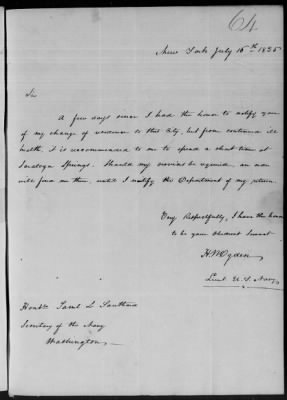 64
New York July 16th 1825
Sir
A few days since I had the honor to notify you
of my change of residence to this City, but from continued ill
health, it is recommended to me to spend a short time at
Saratoga Springs. Should my services be required, an order
will find me there, until I notify the Department of my return.
Very Respectfully, I have the honor
to be your Obedient Servant
H. W. Ogden
Lieut U. S. Navy
Honble Saml L Southard
Secretary of the Navy
Washington